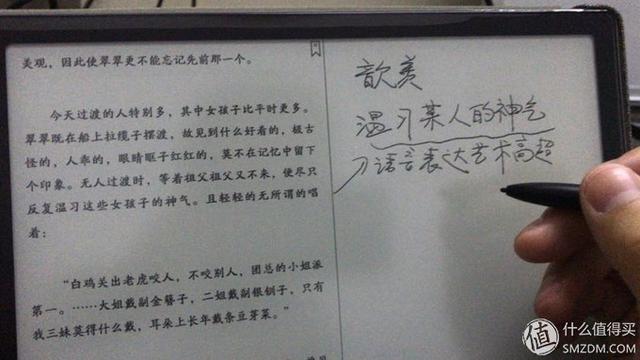 美观，因此使翠翠更不能忘记先前那一个。
今天过渡的人特别多，其中女孩子比平时更多。
翠翠既在船上拉缆子摆渡，故见到什么好看的，极古
怪的，人乖的，眼睛眶子红红的，莫不在记忆中留下
个印象。无人过渡时，等着祖父祖父又不来，便尽只
反复温习这些女孩子的神气。且轻轻的无所谓的唱
着：
“白鸡关出老虎咬人，不咬别人，团总的小姐派
第一。……大姐戴副金簪子，二姐戴副银钏子，只有
我三妹莫得什么戴，耳朵上长年戴条豆芽菜。”
歆羡
温习某人的神气
语言表达艺术高超
值 什么值得买
SMZDM.COM